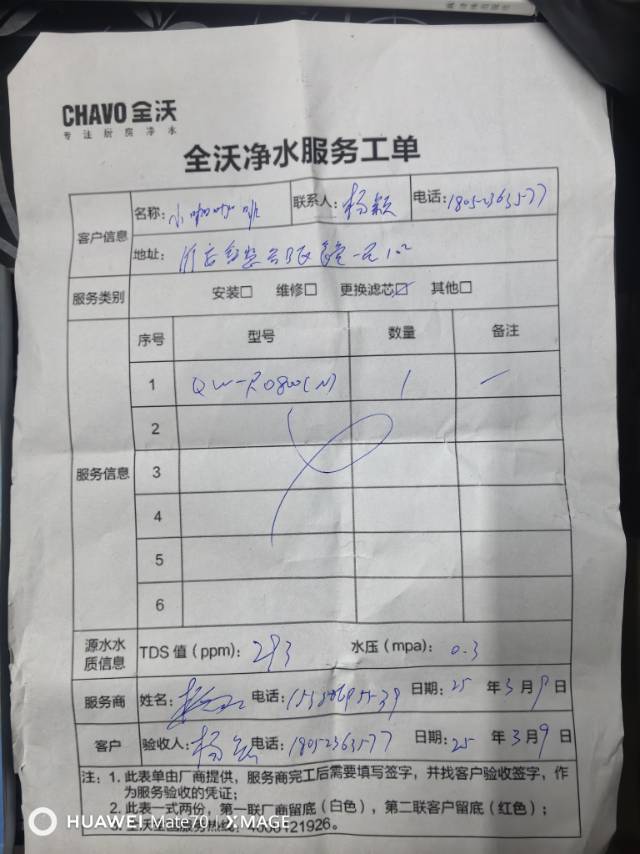 CHAVO 全沃
专注厨房净水
全沃净水服务工单
客户信息
名称：小咖咖啡 联系人：杨颖 电话：18052363577
地址：
服务类别 安装□ 维修□ 更换滤芯☑ 其他□
服务信息
序号 型号 数量 备注
1 QW-RO800(N) 1 —
2
3
4
5
6
源水水质信息 TDS 值（ppm）：293 水压（mpa）：0.3
服务商 姓名： 电话： 日期：25 年 3 月 9 日
客户 验收人：杨 电话：18052363577 日期：25 年 3 月 9 日
注：1. 此表单由厂商提供，服务商完工后需要填写签字，并找客户验收签字，作
为服务验收的凭证；
2. 此表一式两份，第一联厂商留底（白色），第二联客户留底（红色）；
3. 全沃全国服务热线：4008121926。
HUAWEI Mate70 | XMAGE